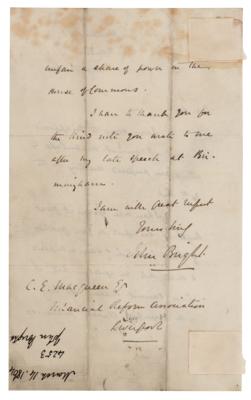 unfair a share of power in the
House of Commons.
I have to thank you for
the kind note you wrote to me
after my late speech at Bir-
mingham.
I am with great respect
Yours truly
John Bright.
C. E. Macqueen Esq
Financial Reform Association
Liverpool
4253
John Bright
March 14. 1864